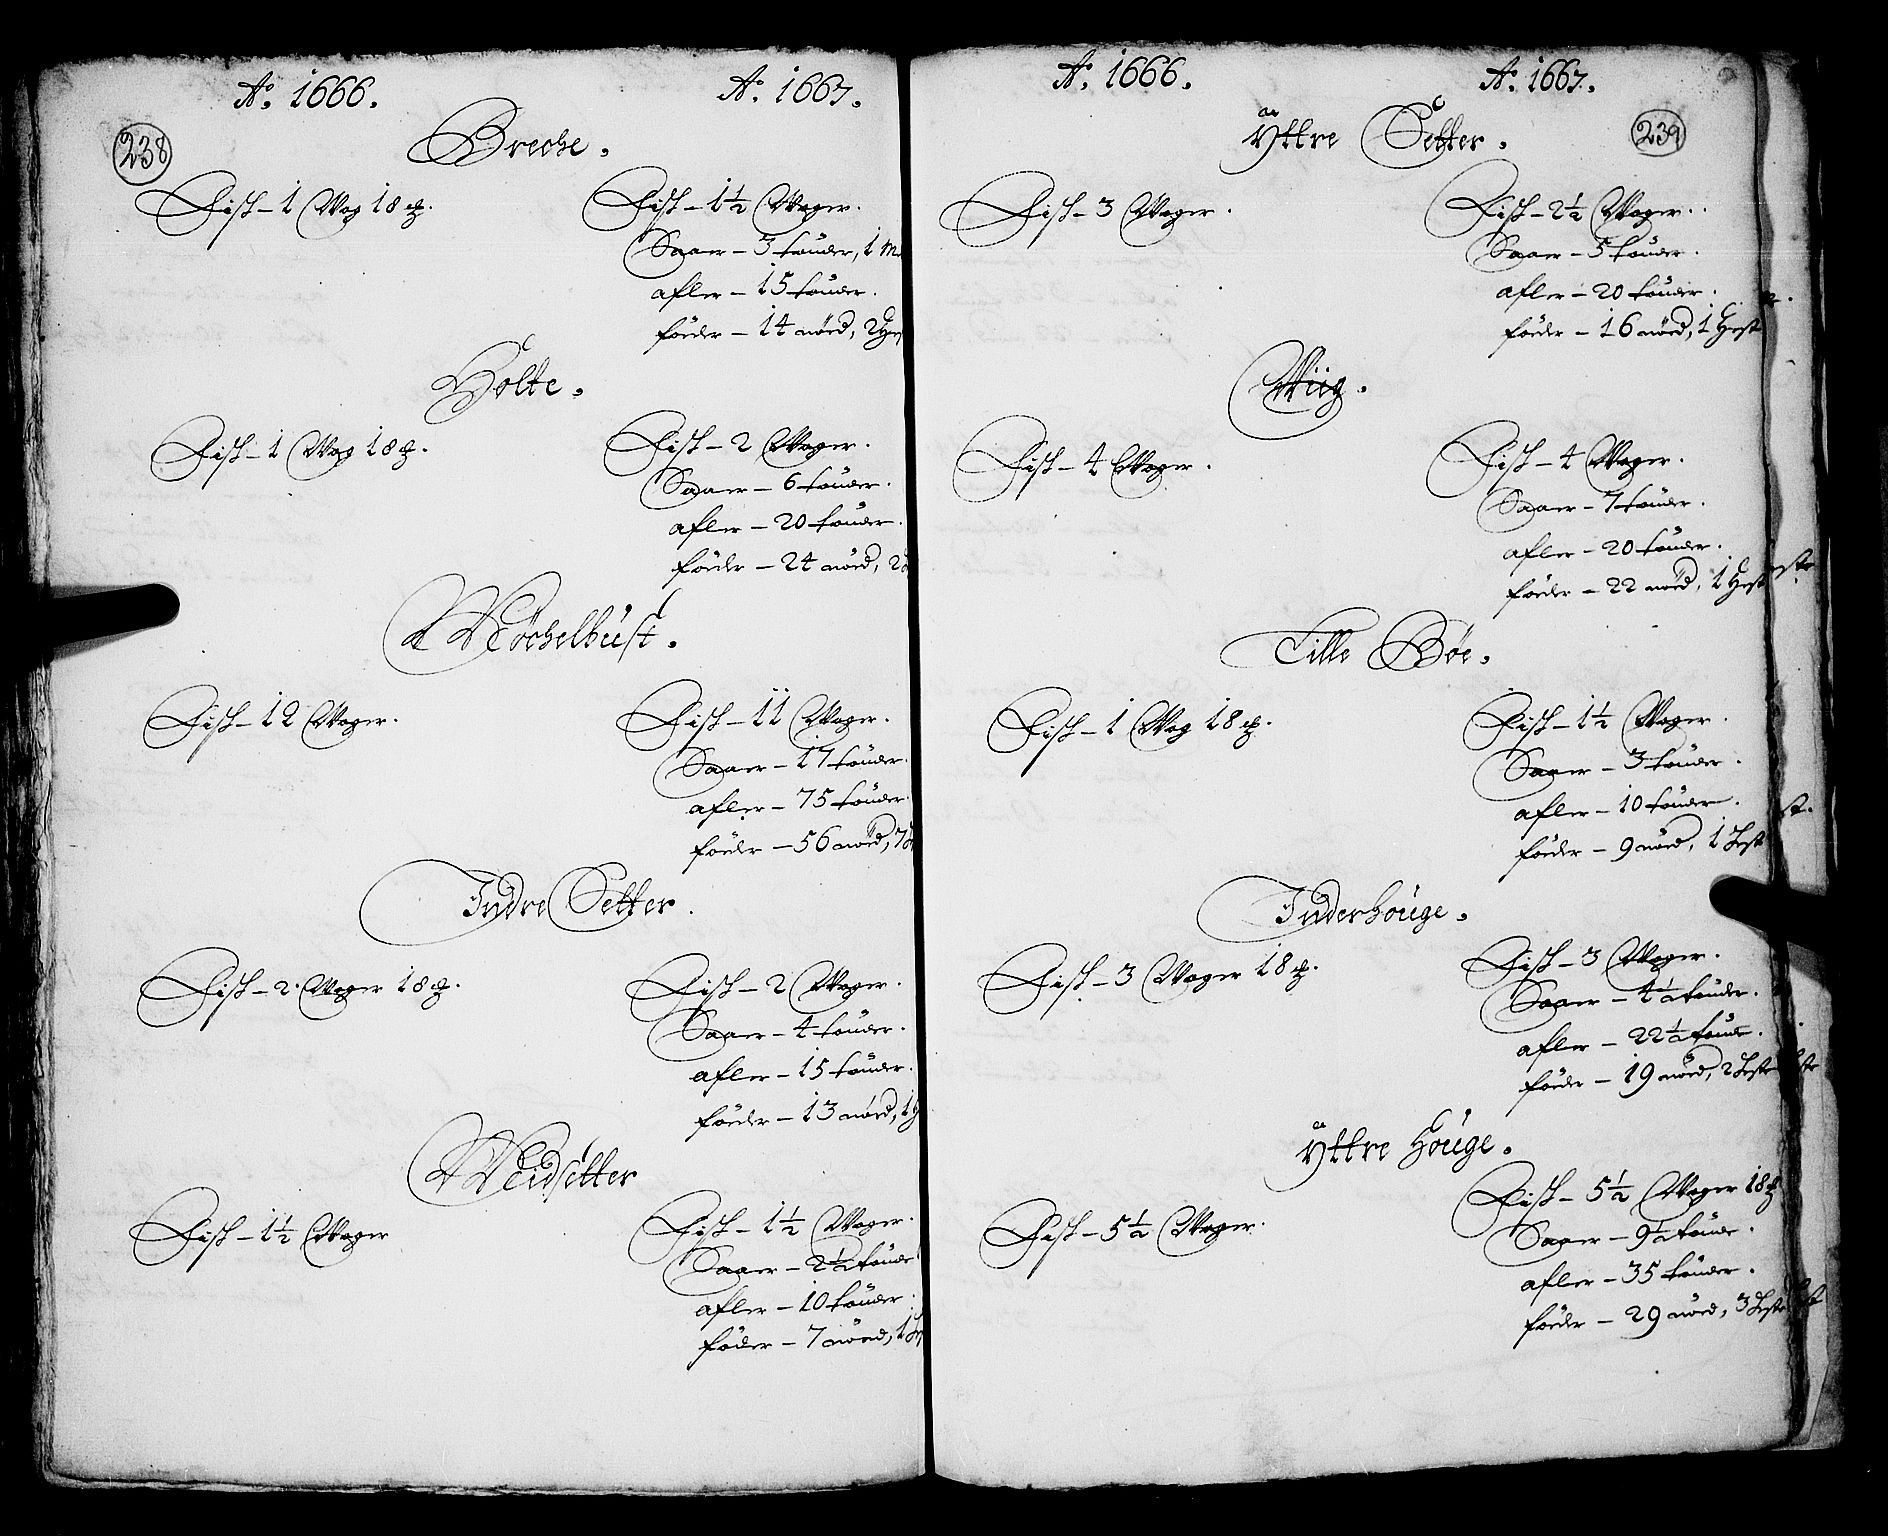 238
Ao. 1666. Ao. 1667.
Breche.
Fisk - 1 Wog 18 ℔. Fisk - 1½ Woger.
Saaer - 3 tønder, 1
afler - 15 tønder.
føder - 14 nød, 2 Hes
Holte.
Fisk - 1 Wog 18 ℔. Fisk - 2 Woger.
Saaer - 6 tønder.
afler - 20 tønder.
føder - 24 nød, 2
Mochelbust.
Fisk - 12 Woger. Fisk - 11 Woger.
Saaer - 17 tønder.
afler - 75 tønder.
føder - 56 nød, 7
Indre Setter.
Fisk - 2. Woger 18 ℔. Fisk - 2 Woger.
Saaer - 4 tønder.
afler - 15 tønder.
føder - 13 nød, 1 H
Meidsetter
Fisk - 1½ Woger Fisk - 1½ Woger.
Saaer - 2½ tønde
afler - 10 tønder.
føder - 7 nød, 1
Ao. 1666. Ao. 1667.
239
Yttre Setter.
Fisk - 3 Woger. Fisk - 2½ Woger.
Saaer - 5 tønder.
afler - 20 tønder.
føder - 16 nød, 1 Hest
Wiig.
Fisk - 4 Woger. Fisk - 4 Woger.
Saaer - 7 tønder.
afler - 20 tønder.
føder - 22 nød, 1 Hest
Lille Bøe.
Fisk - 1 Wog 18 ℔. Fisk - 1½ Woger.
Saaer - 3 tønder.
afler - 10 tønder.
føder - 9 nød, 1 Hest
Inderhouge.
Fisk - 3 Woger 18 ℔. Fisk - 3 Woger.
Saaer - 4½ tønder.
afler - 22½ tønde.
føder - 19 nød, 2 Heste
Yttre Houge.
Fisk - 5½ Woger. Fisk - 5½ Woger 18 ℔
Saaer - 9½ tønde.
afler - 35 tønder.
føder - 29 nød, 3 Heste